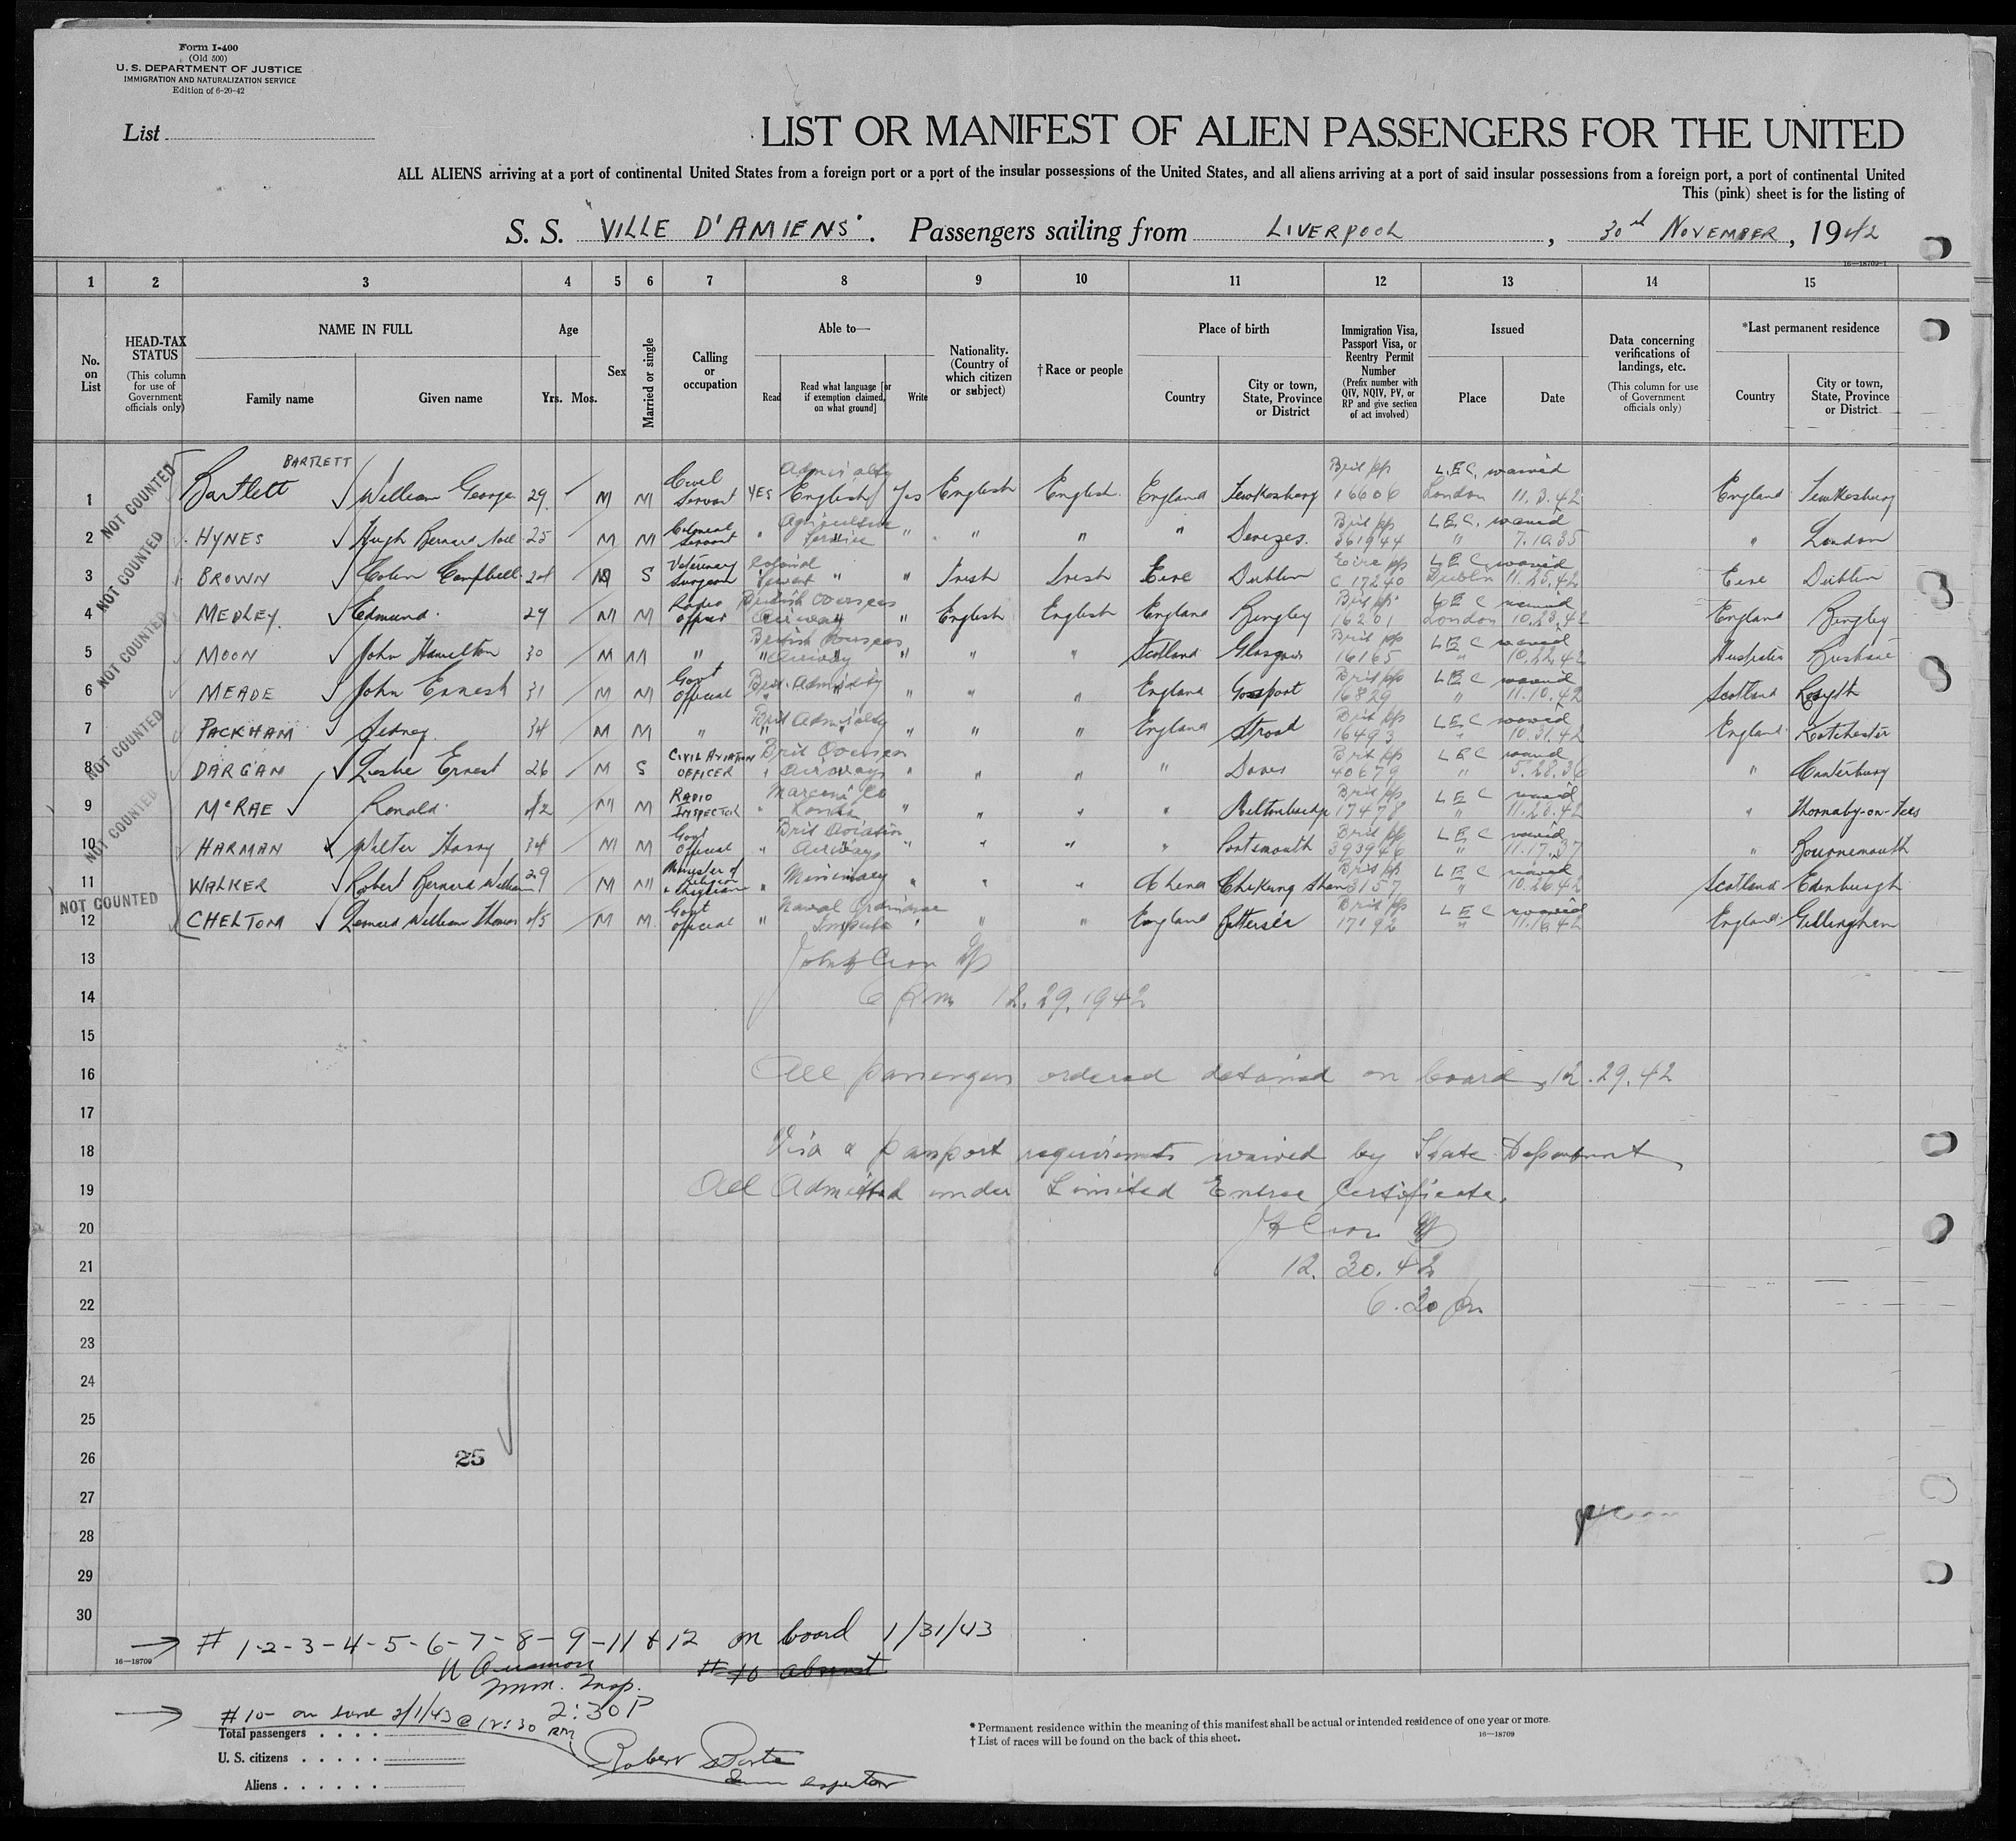 Form I-400
(Old 500)
U. S. DEPARTMENT OF JUSTICE
IMMIGRATION AND NATURALIZATION SERVICE
Edition of 6-20-42
List
LIST OR MANIFEST OF ALIEN PASSENGERS FOR THE UNITED
ALL ALIENS arriving at a port of continental United States from a foreign port or a port of the insular possessions of the United States, and all aliens arriving at a port of said insular possessions from a foreign port, a port of continental United
This (pink) sheet is for the listing of
S. S. "VILLE D'AMIENS". Passengers sailing from LIVERPOOL, 30th NOVEMBER, 1942
16—18709-1
1 2 3 4 5 6 7 8 9 10 11 12 13 14 15
No. on List
HEAD-TAX STATUS (This column for use of Government officials only)
NAME IN FULL Family name Given name
Age Yrs. Mos.
Sex
Married or single
Calling or occupation
Able to— Read Read what language [or if exemption claimed, on what ground] Write
Nationality. (Country of which citizen or subject)
†Race or people
Place of birth Country City or town, State, Province or District
Immigration Visa, Passport Visa, or Reentry Permit Number (Prefix number with QIV, NQIV, PV, or RP and give section of act involved)
Issued Place Date
Data concerning verifications of landings, etc. (This column for use of Government officials only)
*Last permanent residence Country City or town, State, Province or District
NOT COUNTED
NOT COUNTED
NOT COUNTED
NOT COUNTED
NOT COUNTED
NOT COUNTED
BARTLETT Admiralty Brit pp L.E.C. waived
1 Bartlett William George 29 M M Civil Servant YES English Yes English English England Tewkesbury 16606 London 11.3.42 England Tewkesbury
2 HYNES Hugh Bernard Noel 25 M M Colonial Servant " Agriculture Service " " " " Devizes. Brit pp 361944 L.E.C. waived " 7.10.35 " London
3 BROWN Colin Campbell 24 M S Veterinary Surgeon Colonial Servant " " Irish Irish Eire Dublin Eire pp C 17240 L E C waived Dublin 11.25.42 Eire Dublin
4 MEDLEY Edmund 29 M M Radio Officer British Overseas Airways " English English England Bingley Brit pp 16201 L E C waived London 10.23.42 England Bingley
5 MOON John Hamilton 30 M M " " British Overseas Airways " " " Scotland Glasgow Brit pp 16165 L E C waived " 10.22.42 Australia Brisbane
6 MEADE John Ernest 31 M M Govt Official " Brit. Admiralty " " " England Gosport Brit pp 16829 L E C waived " 11.10.42 Scotland Rosyth
7 PACKHAM Sidney 34 M M " " Brit Admiralty " " " England Strood Brit pp 16493 L E C waived " 10.31.42 England
8 DARGAN Leslie Ernest 26 M S CIVIL AVIATION OFFICER " Brit Overseas Airways " " " " Dover Brit pp 40679 L E C waived " 5.28.36 " Canterbury
9 McRAE Ronald 42 M M RADIO INSPECTOR " Marconi Co London " " " " Brit pp 17478 L E C waived " 11.20.42 " Thornaby-on-Tees
10 HARMAN Walter Harry 34 M M Govt Official " Brit Aviation Airways " " " " Portsmouth Brit pp 393946 L E C waived " 11.17.37 " Bournemouth
11 WALKER Robert Bernard William 29 M M Minister of Religion Missionary " " " China Brit pp L E C waived " 10.26.42 Scotland Edinburgh
12 CHELTOM Leonard William Thomas 45 M M Govt Official " Naval Ordnance " " " England Battersea Brit pp 17192 L E C waived " 11.16.42 England Gillingham
13
14 6 P.m. 12.29.1942
15
16 All passengers ordered detained on board, 12.29.42
17
18 Visa & passport requirements waived by State Department
19 All Admitted under Limited Entree Certificate.
20
21 12. 30. 42
22 6.20 pm
23
24
25
26 25
27
28
29
30
# 1-2-3-4-5-6-7-8-9-11 & 12 on board 1/31/43
16—18709
Imm. Insp. # 10 absent
2:30P
# 10 on board 2/1/43 @ 12:30 AM
Robert
Total passengers
U. S. citizens
Aliens
* Permanent residence within the meaning of this manifest shall be actual or intended residence of one year or more.
† List of races will be found on the back of this sheet.
16—18709